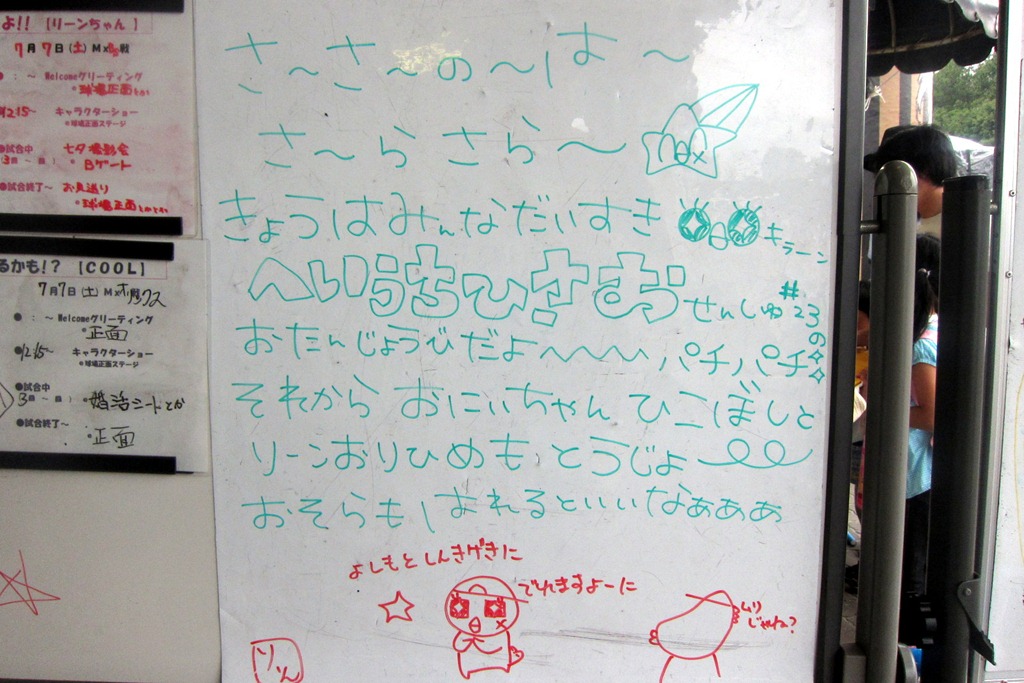 よ!!【リーンちゃん】
7月7日(土)Mxオ戦
●：～Welcomeグリーティング
●球場正面とか
12:15～ キャラクターショー
●球場正面ステージ
●試合中 七夕撮影会
Bゲート
●試合終了～ お見送り
●球場正面
るかも!?【COOL】
7月7日(土)Mxオリックス
●：～Welcomeグリーティング
●正面
●12:15～ キャラクターショー
●球場正面ステージ
●試合中
●婚活シートとか
●試合終了～
●正面
さ～さ～の～は～
さ～らさら～
きょうはみんなだいすき
キラーン
へいうちひさお せんしゅ #23の
おたんじょうびだよ～～～ パチパチ
それから おにいちゃん ひこぼしと
リーンおりひめも とうじょー
おそらもはれるといいなぁぁぁ
よしもとしんきげきに
でれますよーに
ムリじゃね?
りん